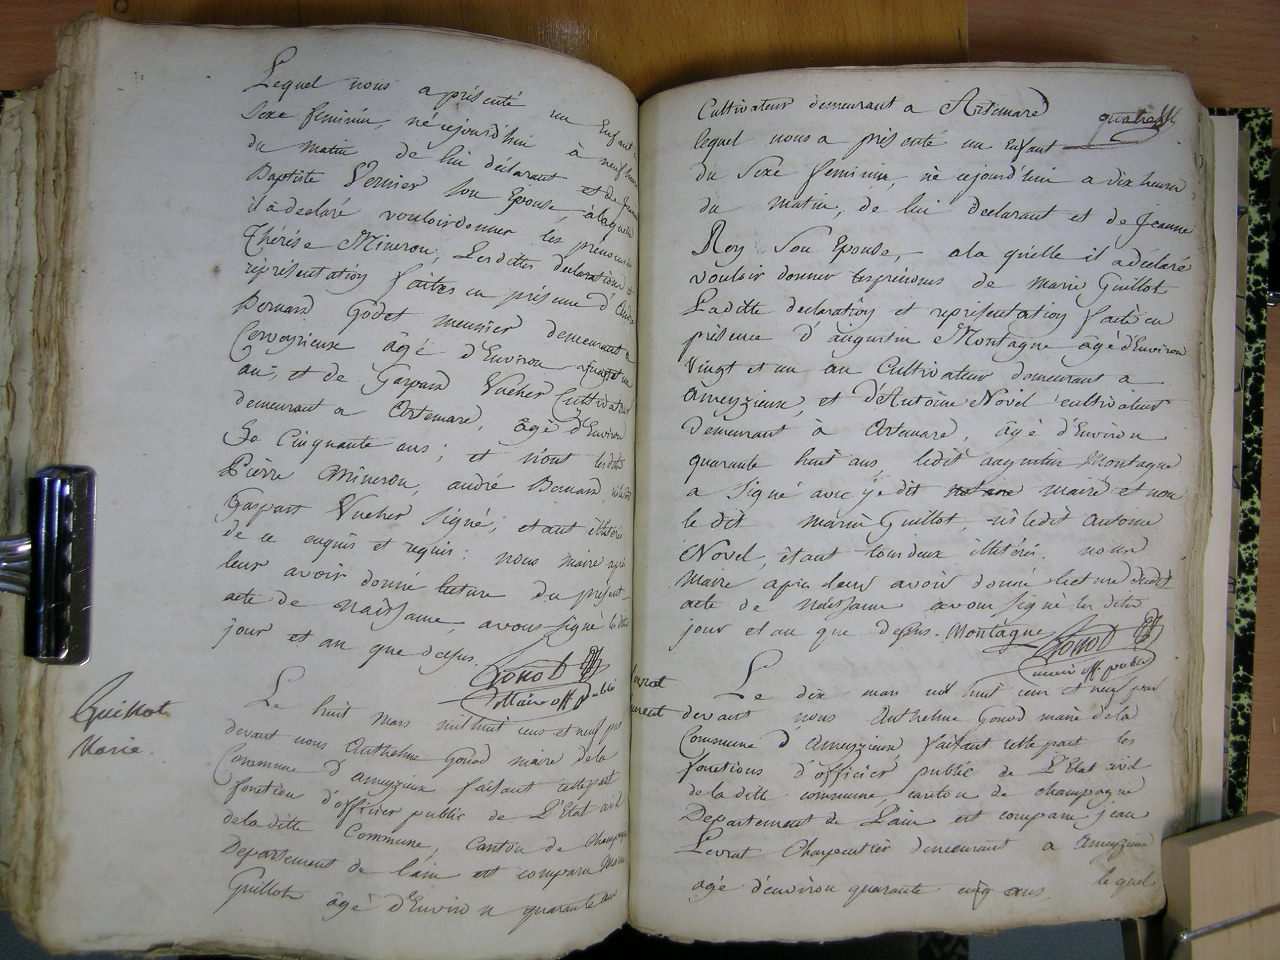 Lequel nous a présenté un Enfant
Sexe feminin, né cejourd'hui à neuf heures
du matin de lui déclarant et de
Baptiste Vernier son Epouse, à laquelle
il a declaré vouloir donner les prénoms
Thérèse Mineron, Lesdittes declaration et
représentation faittes en présence d'
Bernard Godet meunier demeurant a
Cerveyrieux âgé d'Environ
an; et de Gaspard Vucher Cultivateur
demeurant a Artemare, âgé d'Environ
De Cinquante ans; et n'ont lesdits
Pierre Mineron, andré Bernard,
Gaspart Vucher signé; etant illiteres
de ce enquis et requis: nous maire après
leur avoir donné lecture du présent
acte de naissance, avons signé lesdits
jour et an que dessus.
Maire off public
Guillot
Marie.
Le huit Mars mil huit cens et neuf par
devant nous Anthelme Gonod maire de la
Commune d'ameyzieux faisant cette part
fonction d'officier public de L'Etat civil
de la ditte Commune, Canton de Champagne
Departement de l'ain est comparu
Guillot âgé d'Environ quarante
Cultivateur demeurant a Artemare
lequel nous a présenté un enfant
du Sexe feminin, né cejourd'hui a dix heures
du matin, de lui declarant et de Jeanne
Roy Son Epouse, a la quelle il a déclaré
vouloir donner les prénoms de marie Guillot
Laditte declaration et représentation faite en
présence d'augustin Montagne âgé d'Environ
Vingt et un an Cultivateur demeurant a
Ameyzieux, et d'Antoine Novel cultivateur
Demeurant à Artemare, âgé d'Environ
quarante huit ans, ledit augustin Montagne
a Signé avec maire et non
le dit Guillot ni ledit antoine
Novel, étant tous deux illitérés. nous
Maire après leur avoir donné lecture dudit
acte de naissance avons signé les dits
jour et an que dessus. Montagne
maire off public
Levrat
Le dix mars mil huit cens et neuf par
devant nous Anthelme Gonod maire de la
Commune d'Ameyzieux faisant cette part les
fonctions d'officier public de L'Etat civil
de la ditte commune, canton de champagne
Departement de L'ain est comparu jean
Levrat Charpentier demeurant a Ameyzieux
agé d'environ quarante cinq ans lequel